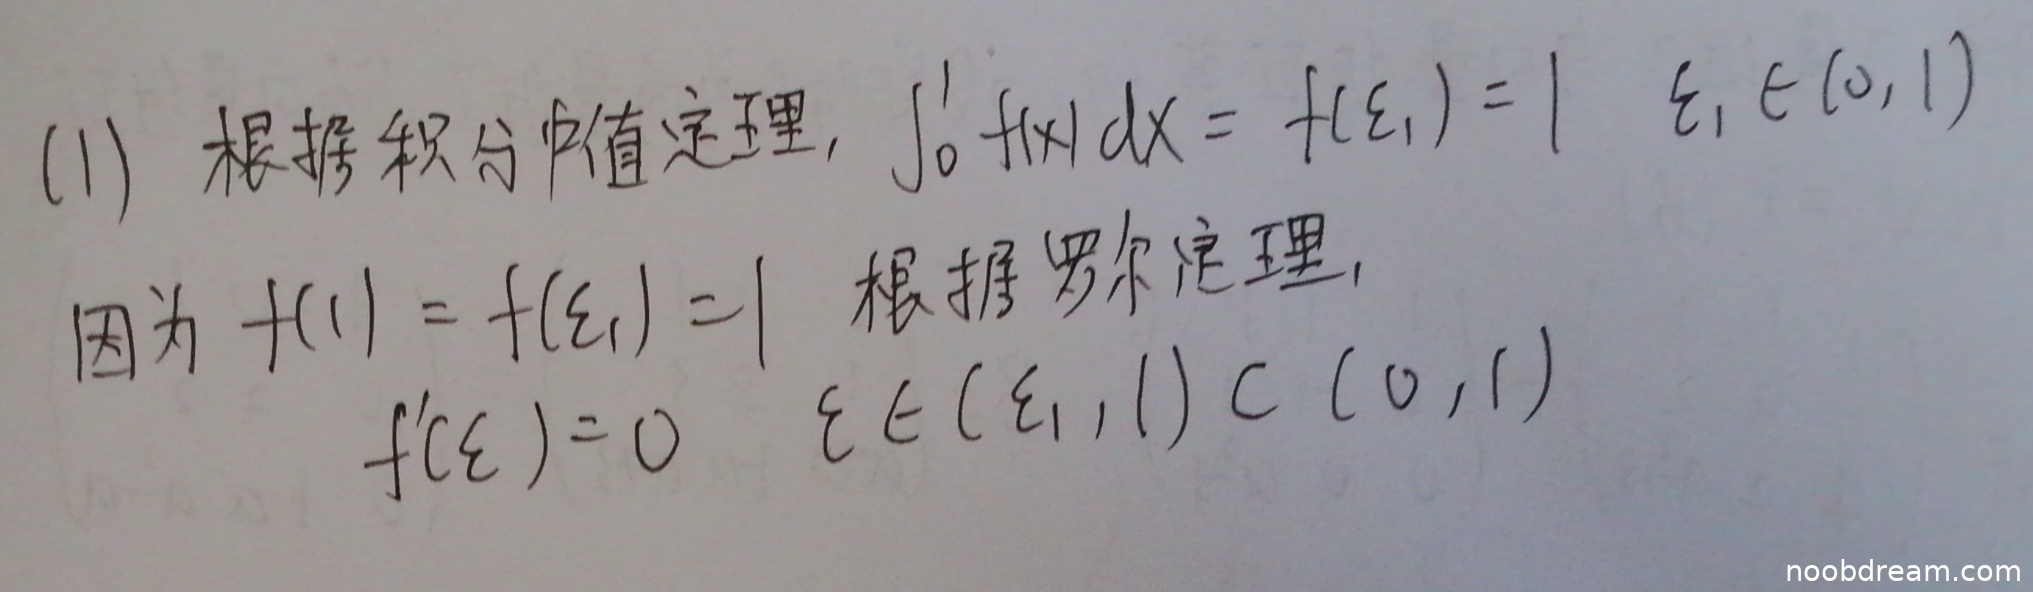 (1) 根据积分中值定理, ∫₀¹ f(x) dx = f(ξ₁) = 1 ξ₁ ∈ (0, 1)
因为 f(1) = f(ξ₁) = 1 根据罗尔定理,
f'(ξ) = 0 ξ ∈ (ξ₁, 1) ⊂ (0, 1)
noobdream.com